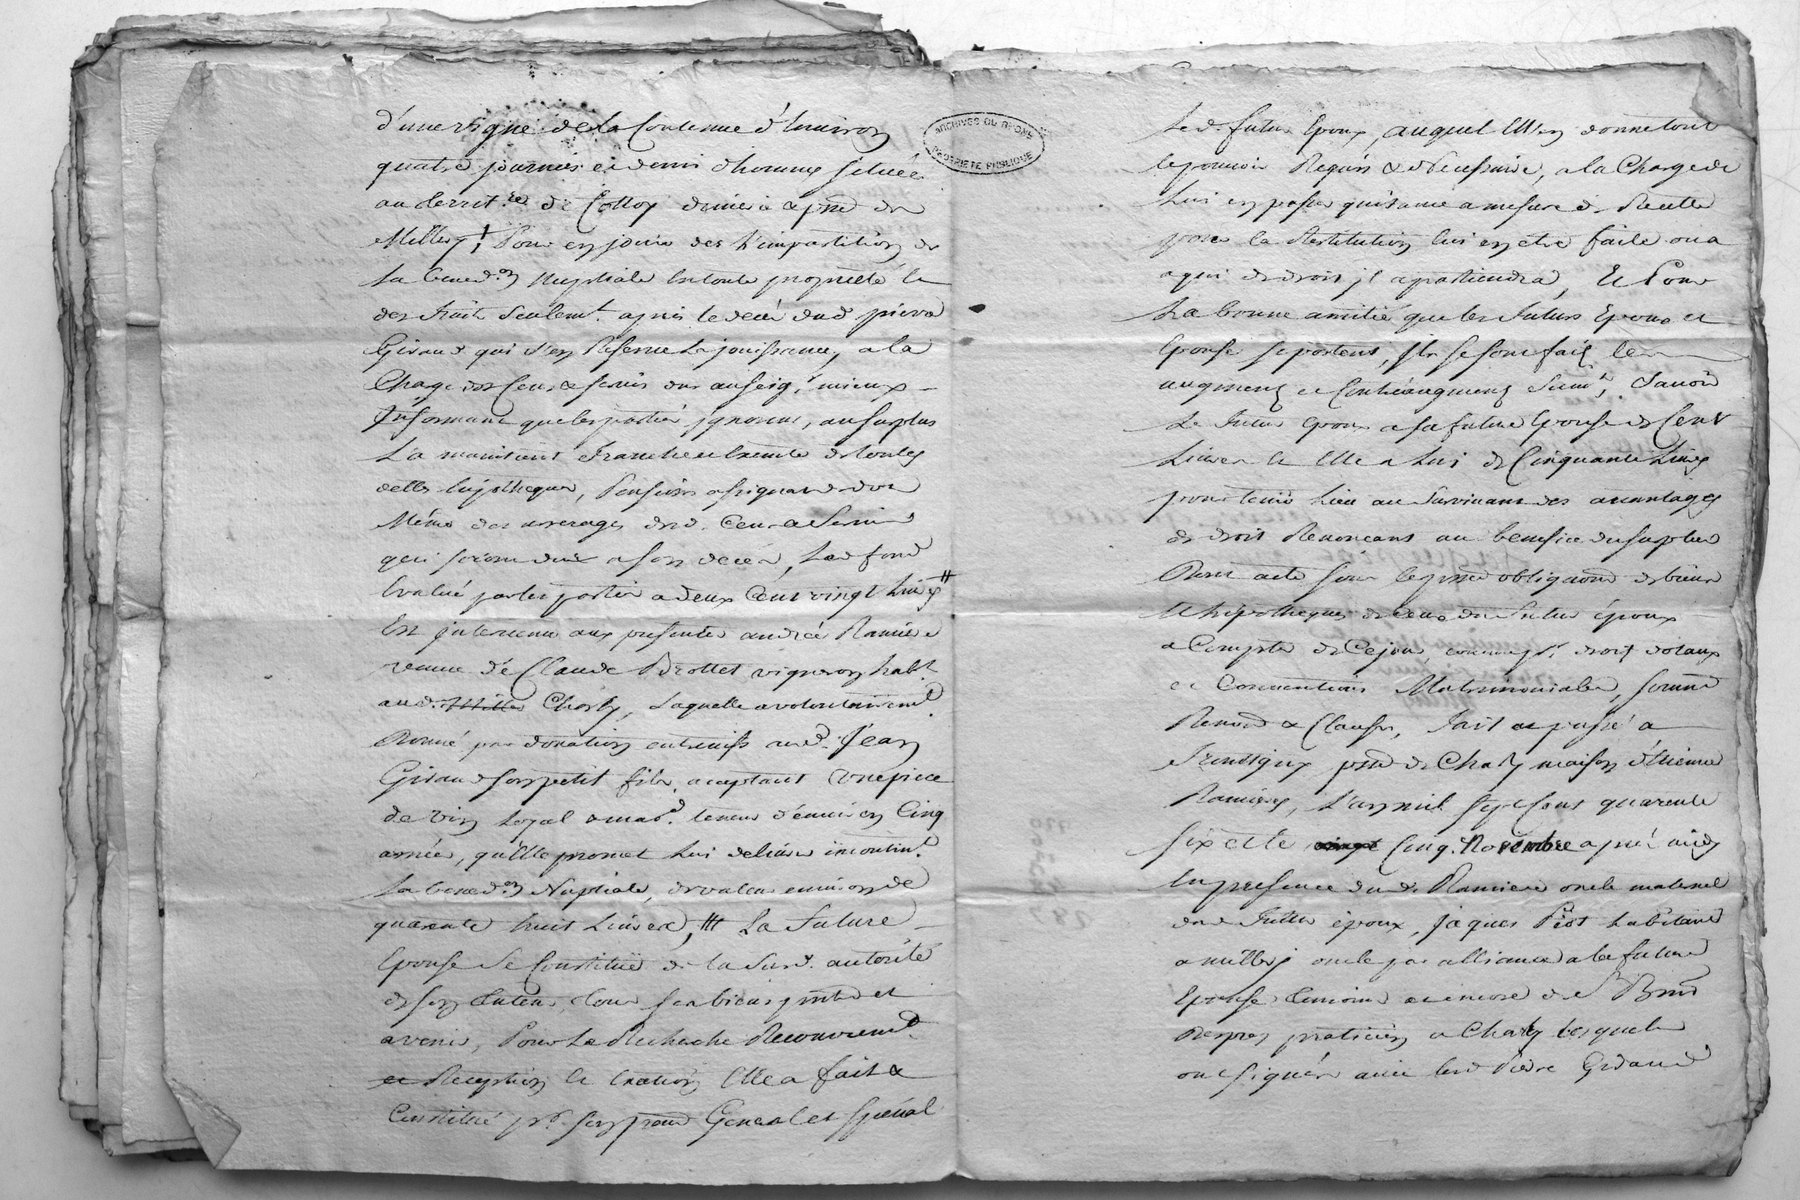 d'une vigne de la Contenue d'Environ
quatre journées et demi d'homme située
au territ.re de Cottoy
Millery, Pour en jouir des L'impartition de
La bened.on Nuptiale En toute propriété et
des fruits Seulemt. après le décès dud. pierre
Giraud qui s'en Reserve La jouissance, a la
Charge des Cens & servis dus au seig.r mieux
Informant que les parties ignorent, au surplus
La maintient franche et Exempte de toutes
dettes hipotheques, Pensions
Même des arrerages desd. Cens & Servis
qui seront dus a son décès, Led. fond
Evalué par les parties a deux Cent vingt Livres
Est intervenu aux presentes andrée Ramiere
veuve de Claude Brottet vigneron habt.
aud. Charly, Laquelle a volontairemt.
Donné par donation entrevifs aud. Jean
Giraud son petit fils, acceptant Une piece
de vin Loyal & mad. tenue d'environ Cinq
années, qu'Elle promet Lui delivrer incontint.
La bened.on Nuptiale, de valeur environ de
quarante huit Livres, La future
Epouse Se Constitüe de la Susd. autorité
de son tuteur, Tous ses biens pnts et
avenir, Pour La Recherche Recouvremt.
et Reception Elle a fait &
Constitué pr. son procr. General et special
Led. futur Epoux, auquel Elle en donne tout
le pouvoir Requis & Necessaire, a la Charge de
Lui en passer quitance a mesure de Recette
pour la Restitution lui en etre faite ou a
a qui de droit il apartiendra, Et Pour
La bonne amitié que les futurs Epoux et
Epouse se portent, ils se sont fait les
augment et Contreaugment Suivts, Savoir
Le futur Epoux a sa future Epouse de Cent
Livres et Elle a Lui de Cinquante Livres
pour tenir Lieu au Survivant des avantages
de droit Renonçant au benefice du surplus
Dont acte sous les obligations de biens
Et hipotheques de Ceux du futur époux
a Compter de Ce jour, droits dotaux
et Conventions Matrimoniales, soumis
Renond. & Clauses, fait et passé a
psse de Charly maison d'Etienne
Ramiere, L'an mil sept Cent quarante
six et le Cinq Novembre après midy
En presence dud. Ramiere oncle maternel
dud. futur époux, Jaques Piot habitant
a millery oncle par alliance a la future
Epouse temoins et encore de Sr
praticien a Charly Lesquels
ont signés avec led. Pierre Giraud
ARCHIVES DU RHONE
PROPRIÉTÉ PUBLIQUE